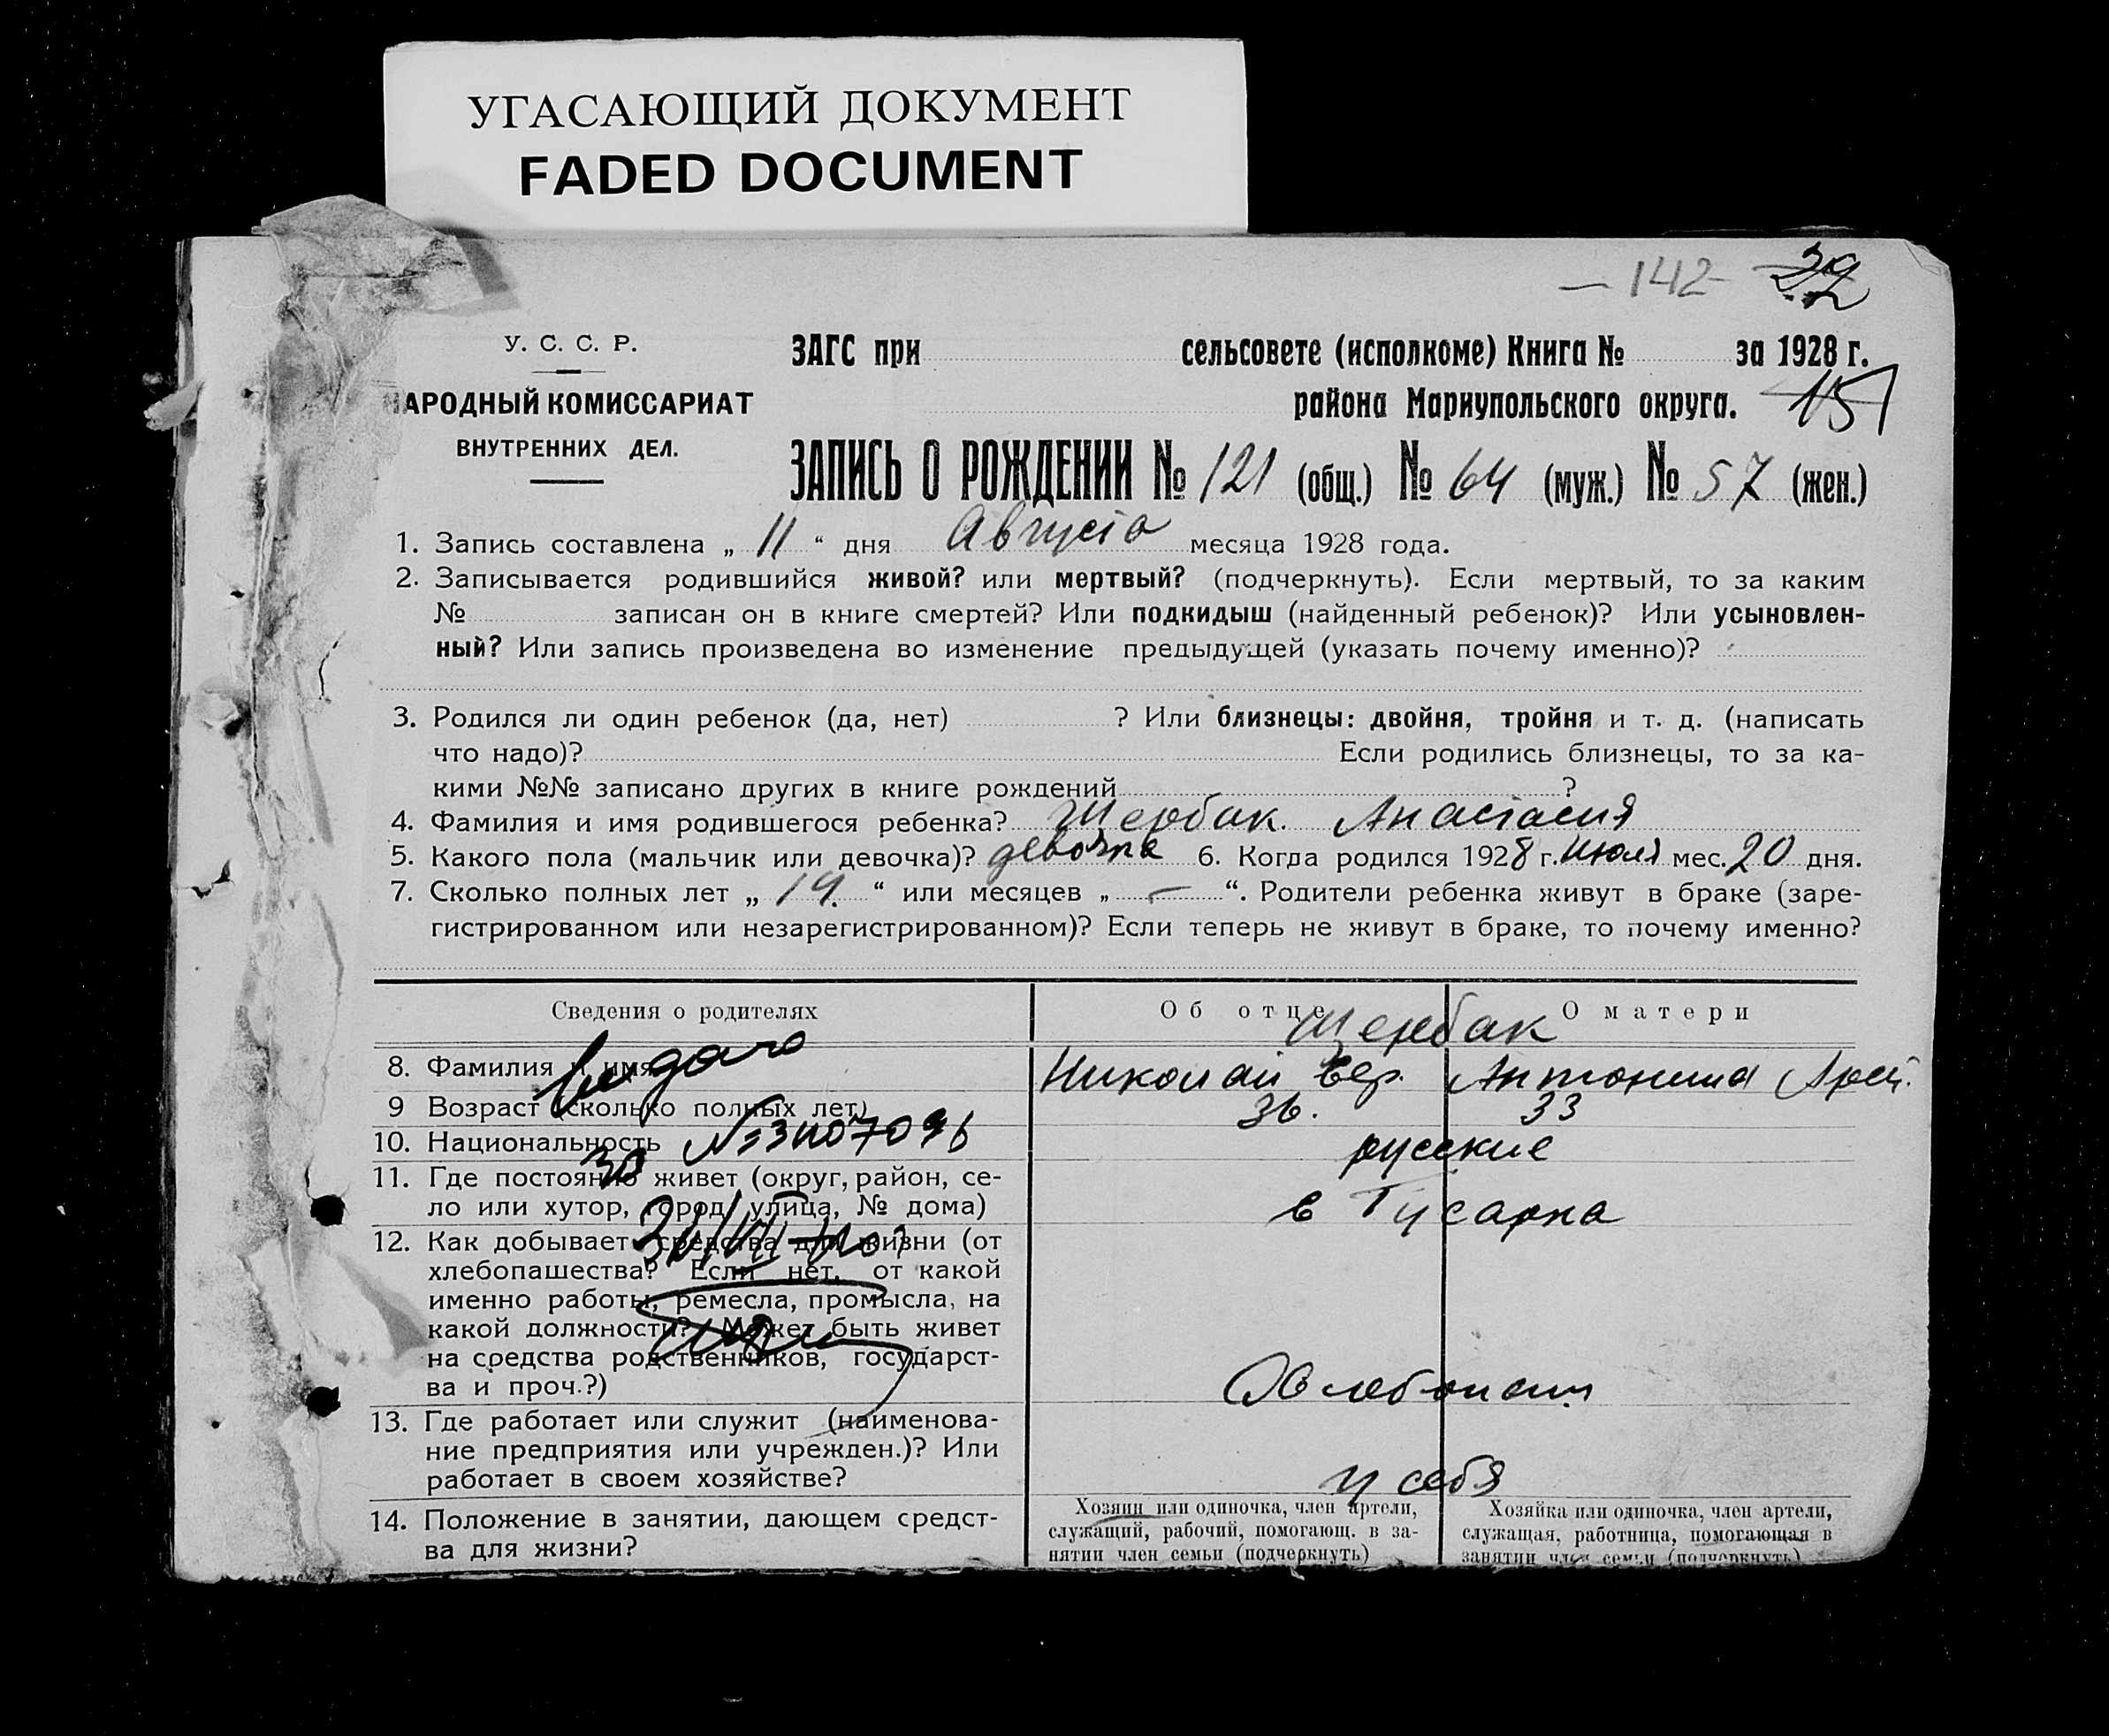 УГАСАЮЩИЙ ДОКУМЕНТ
FADED DOCUMENT
— 142 - 32
У. С. С. Р.
НАРОДНЫЙ КОМИССАРИАТ
ВНУТРЕННИХ ДЕЛ.
ЗАГС при сельсовете (исполкоме) Книга № за 1928 г.
района Мариупольского округа. 151
ЗАПИСЬ О РОЖДЕНИИ № 121 (общ.) № 64 (муж.) № 57 (жен.)
1. Запись составлена „ 11 “ дня Августа месяца 1928 года.
2. Записывается родившийся живой? или мертвый? (подчеркнуть). Если мертвый, то за каким
№ записан он в книге смертей? Или подкидыш (найденный ребенок)? Или усыновлен-
ный? Или запись произведена во изменение предыдущей (указать почему именно)?
3. Родился ли один ребенок (да, нет) ? Или близнецы: двойня, тройня и т. д. (написать
что надо)? Если родились близнецы, то за ка-
кими №№ записано других в книге рождений ?
4. Фамилия и имя родившегося ребенка? Щербак. Анастасия
5. Какого пола (мальчик или девочка)? девочка 6. Когда родился 1928 г. Июля мес. 20 дня.
7. Сколько полных лет „ 19. “ или месяцев „ — “. Родители ребенка живут в браке (заре-
гистрированном или незарегистрированном)? Если теперь не живут в браке, то почему именно?
Сведения о родителях Об отце О матери
Щербак
8. Фамилия и имя Николай Антонина
9 Возраст (сколько полных лет) 36. 33
10. Национальность русские
11. Где постоянно живет (округ, район, се-
ло или хутор, город, улица, № дома) в Гусарка
12. Как добывает средства для жизни (от
хлебопашества? Если нет, от какой
именно работы, ремесла, промысла, на
какой должности? Может быть живет
на средства родственников, государст-
ва и проч.?)
13. Где работает или служит (наименова-
ние предприятия или учрежден.)? Или
работает в своем хозяйстве? у себя
14. Положение в занятии, дающем средст-
ва для жизни?
Хозяин или одиночка, член артели,
служащий, рабочий, помогающ. в за-
нятии член семьи (подчеркнуть)
Хозяйка или одиночка, член артели,
служащая, работница, помогающая в
занятии член семьи (подчеркнуть)